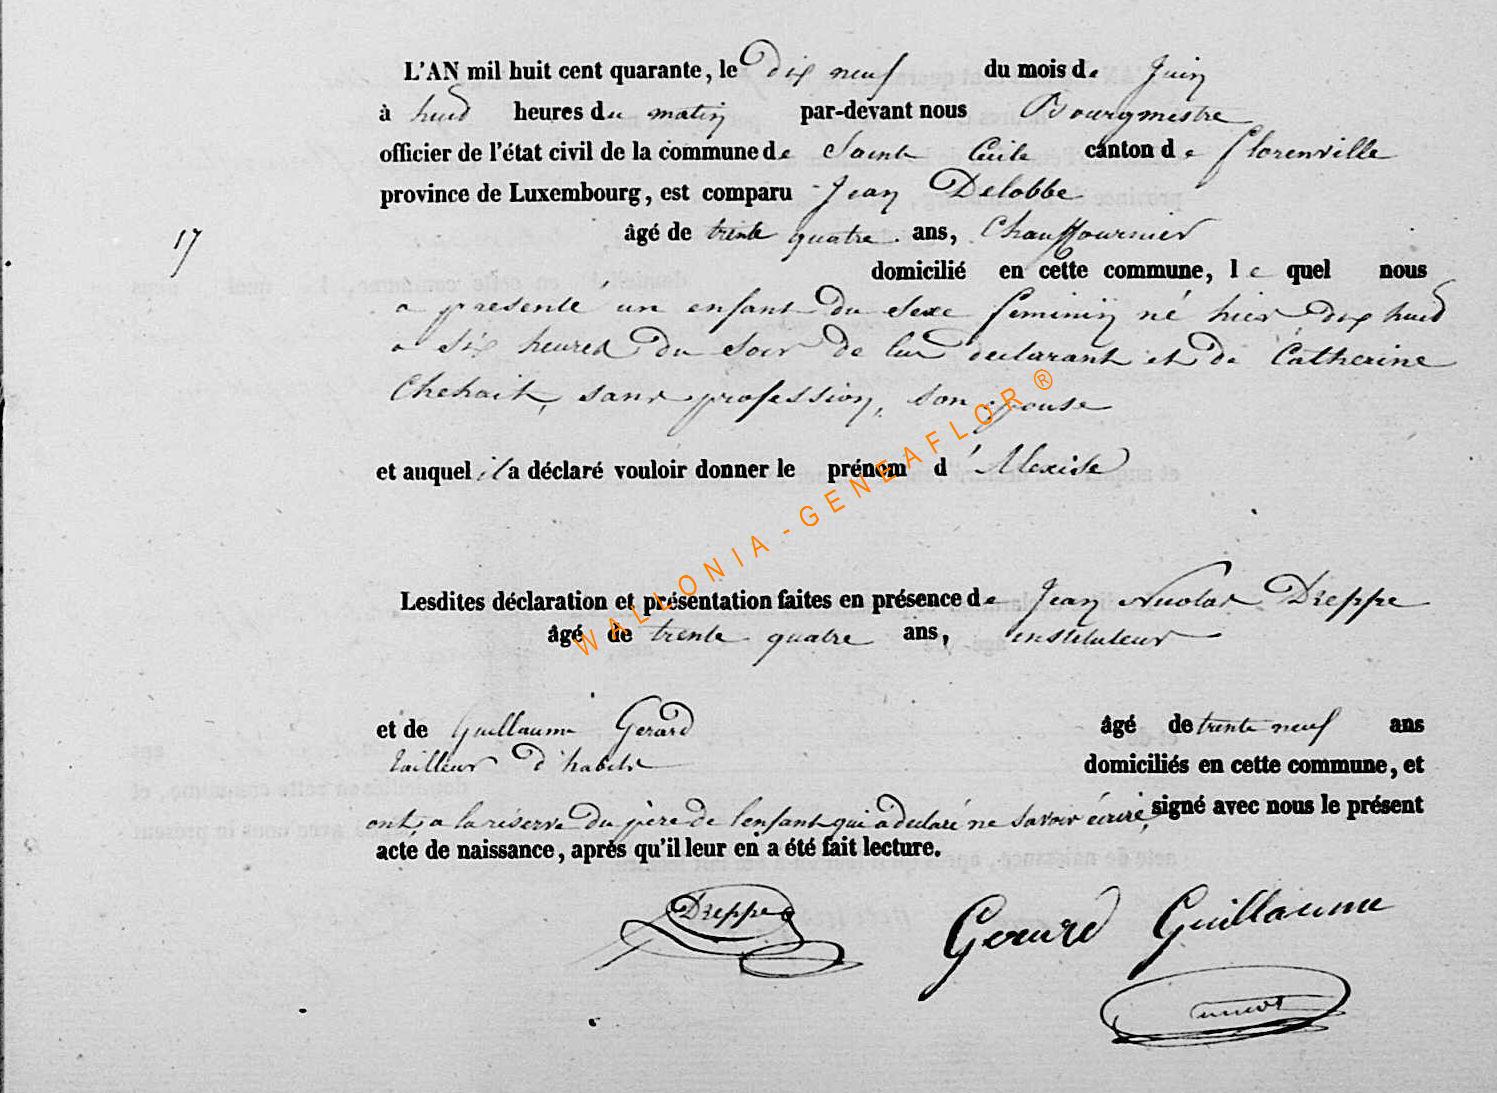 L'AN mil huit cent quarante, le dix neuf du mois de Juin
à huit heures du matin par-devant nous Bourgmestre
officier de l'état civil de la commune de Saint Cécile canton de florenville
province de Luxembourg, est comparu Jean Delobbe
17
âgé de trente quatre ans, Chauffournier
domicilié en cette commune, le quel nous
a présenté un enfant du sexe feminin né hier dix huit
a six heures du soir de lui declarant et de Catherine
Chehait, sans profession, son epouse
et auquel il a déclaré vouloir donner le prénom d'Alexise
Lesdites déclaration et présentation faites en présence de Jean Nicolas Dreppe
âgé de trente quatre ans, instituteur
et de Guillaume Gerard âgé de trente neuf ans
tailleur d'habits domiciliés en cette commune, et
ont, a la réserve du père de l'enfant qui a declaré ne savoir écrire, signé avec nous le présent
acte de naissance, après qu'il leur en a été fait lecture.
Dreppe Gerard Guillaume
WALLONIA-GENEAFLOR®